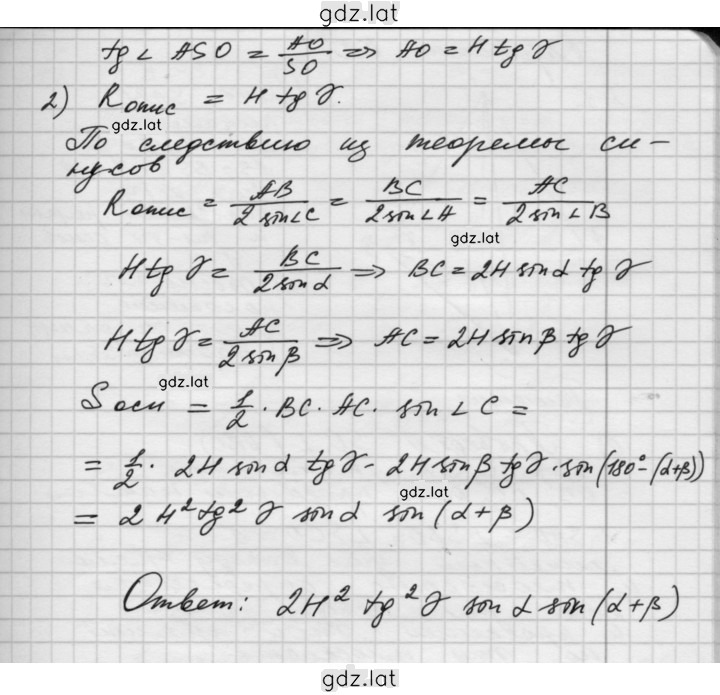 gdz.lat
tg ∠ ASO = AO/SO => AO = H tg γ
2) Rопис = H tg γ.
gdz.lat
По следствию из теоремы си-
нусов
Rопис = AB/2 sin∠C = BC/2 sin∠A = AC/2 sin∠B
gdz.lat
H tg γ = BC/2 sin α => BC = 2H sin α tg γ
H tg γ = AC/2 sin β => AC = 2H sin β tg γ
gdz.lat
Sосн = 1/2 · BC · AC · sin ∠ C =
= 1/2 · 2H sin α tg γ · 2H sin β tg γ · sin(180° - (α+β))
gdz.lat
= 2 H² tg² γ sin α sin (α + β)
Ответ: 2H² tg² γ sin α sin (α + β)
gdz.lat